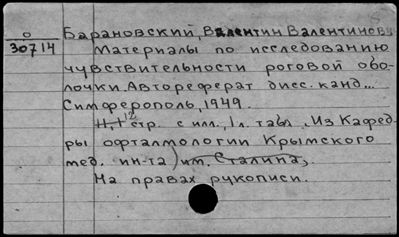 о
30714
Барановский, Валентин Валентинович
Материалы по исследованию
чувствительности роговой обо-
лочки. Автореферат дисс. канд...
Симферополь, 1949.
стр. с илл., 1 л. табл. (Из Кафед-
ры офталмологии Крымского
мед. ин-та) им. Сталина).
На правах рукописи.